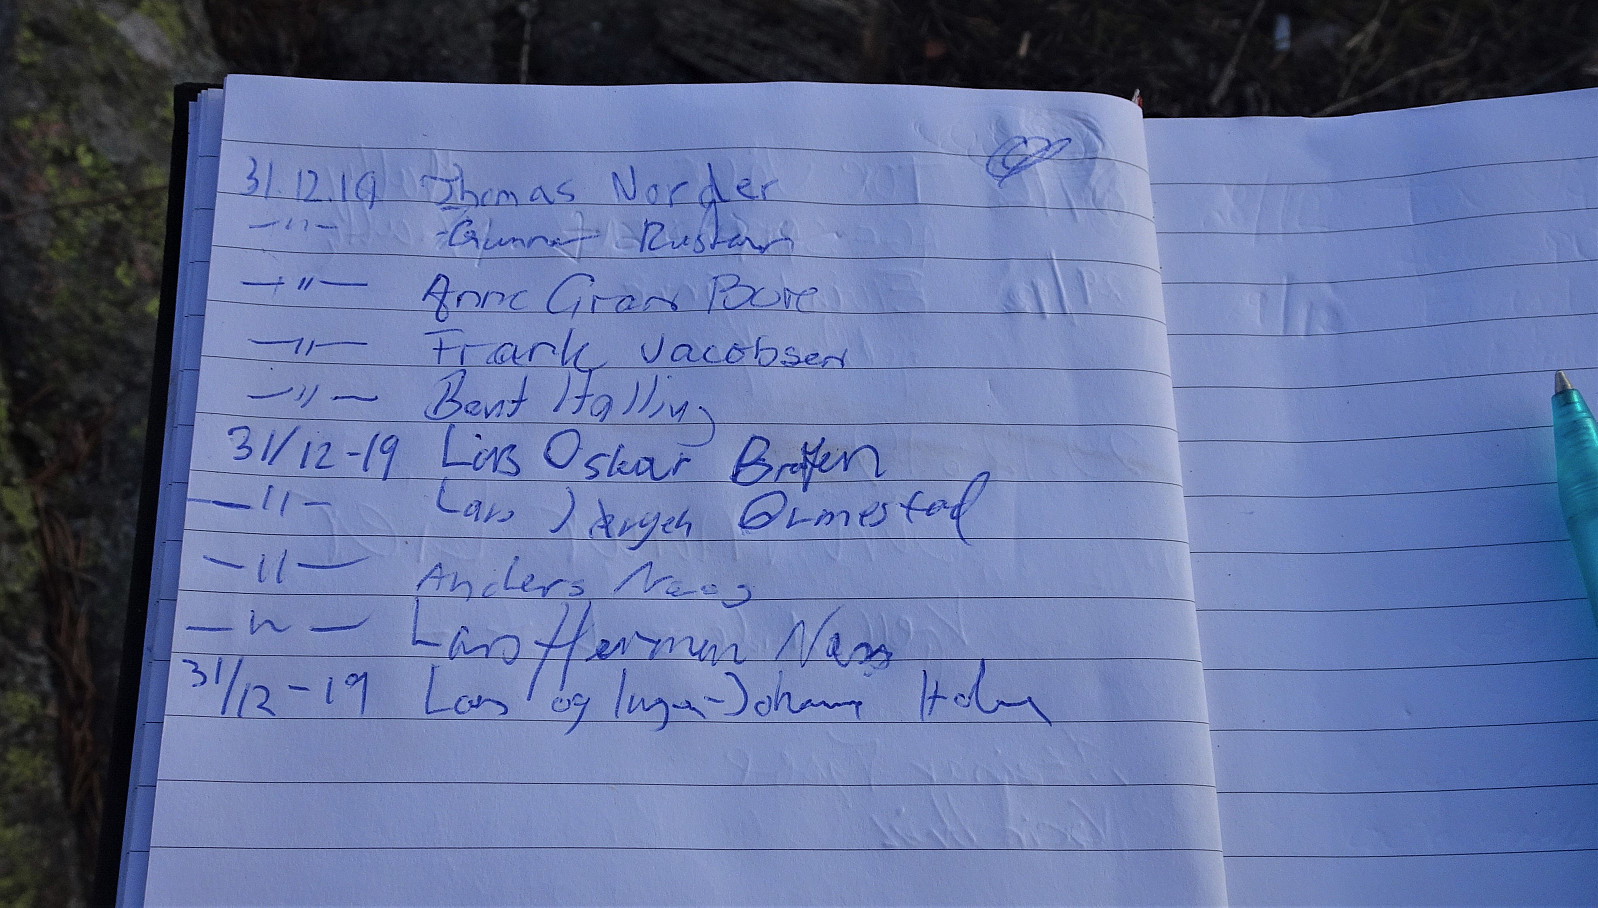 31.12.19 Thomas Norder
—"— Gunnar Rustan
—"— Anne Gran Bore
—"— Frank Jacobsen
—"— Bent Halling
31/12-19 Lars Oskar Bråten
—"— Lars Jørgen Ormestad
—"— Anders Næss
—"— Lars Herman Næss
31/12-19 Lars og Inger-Johanne Holm